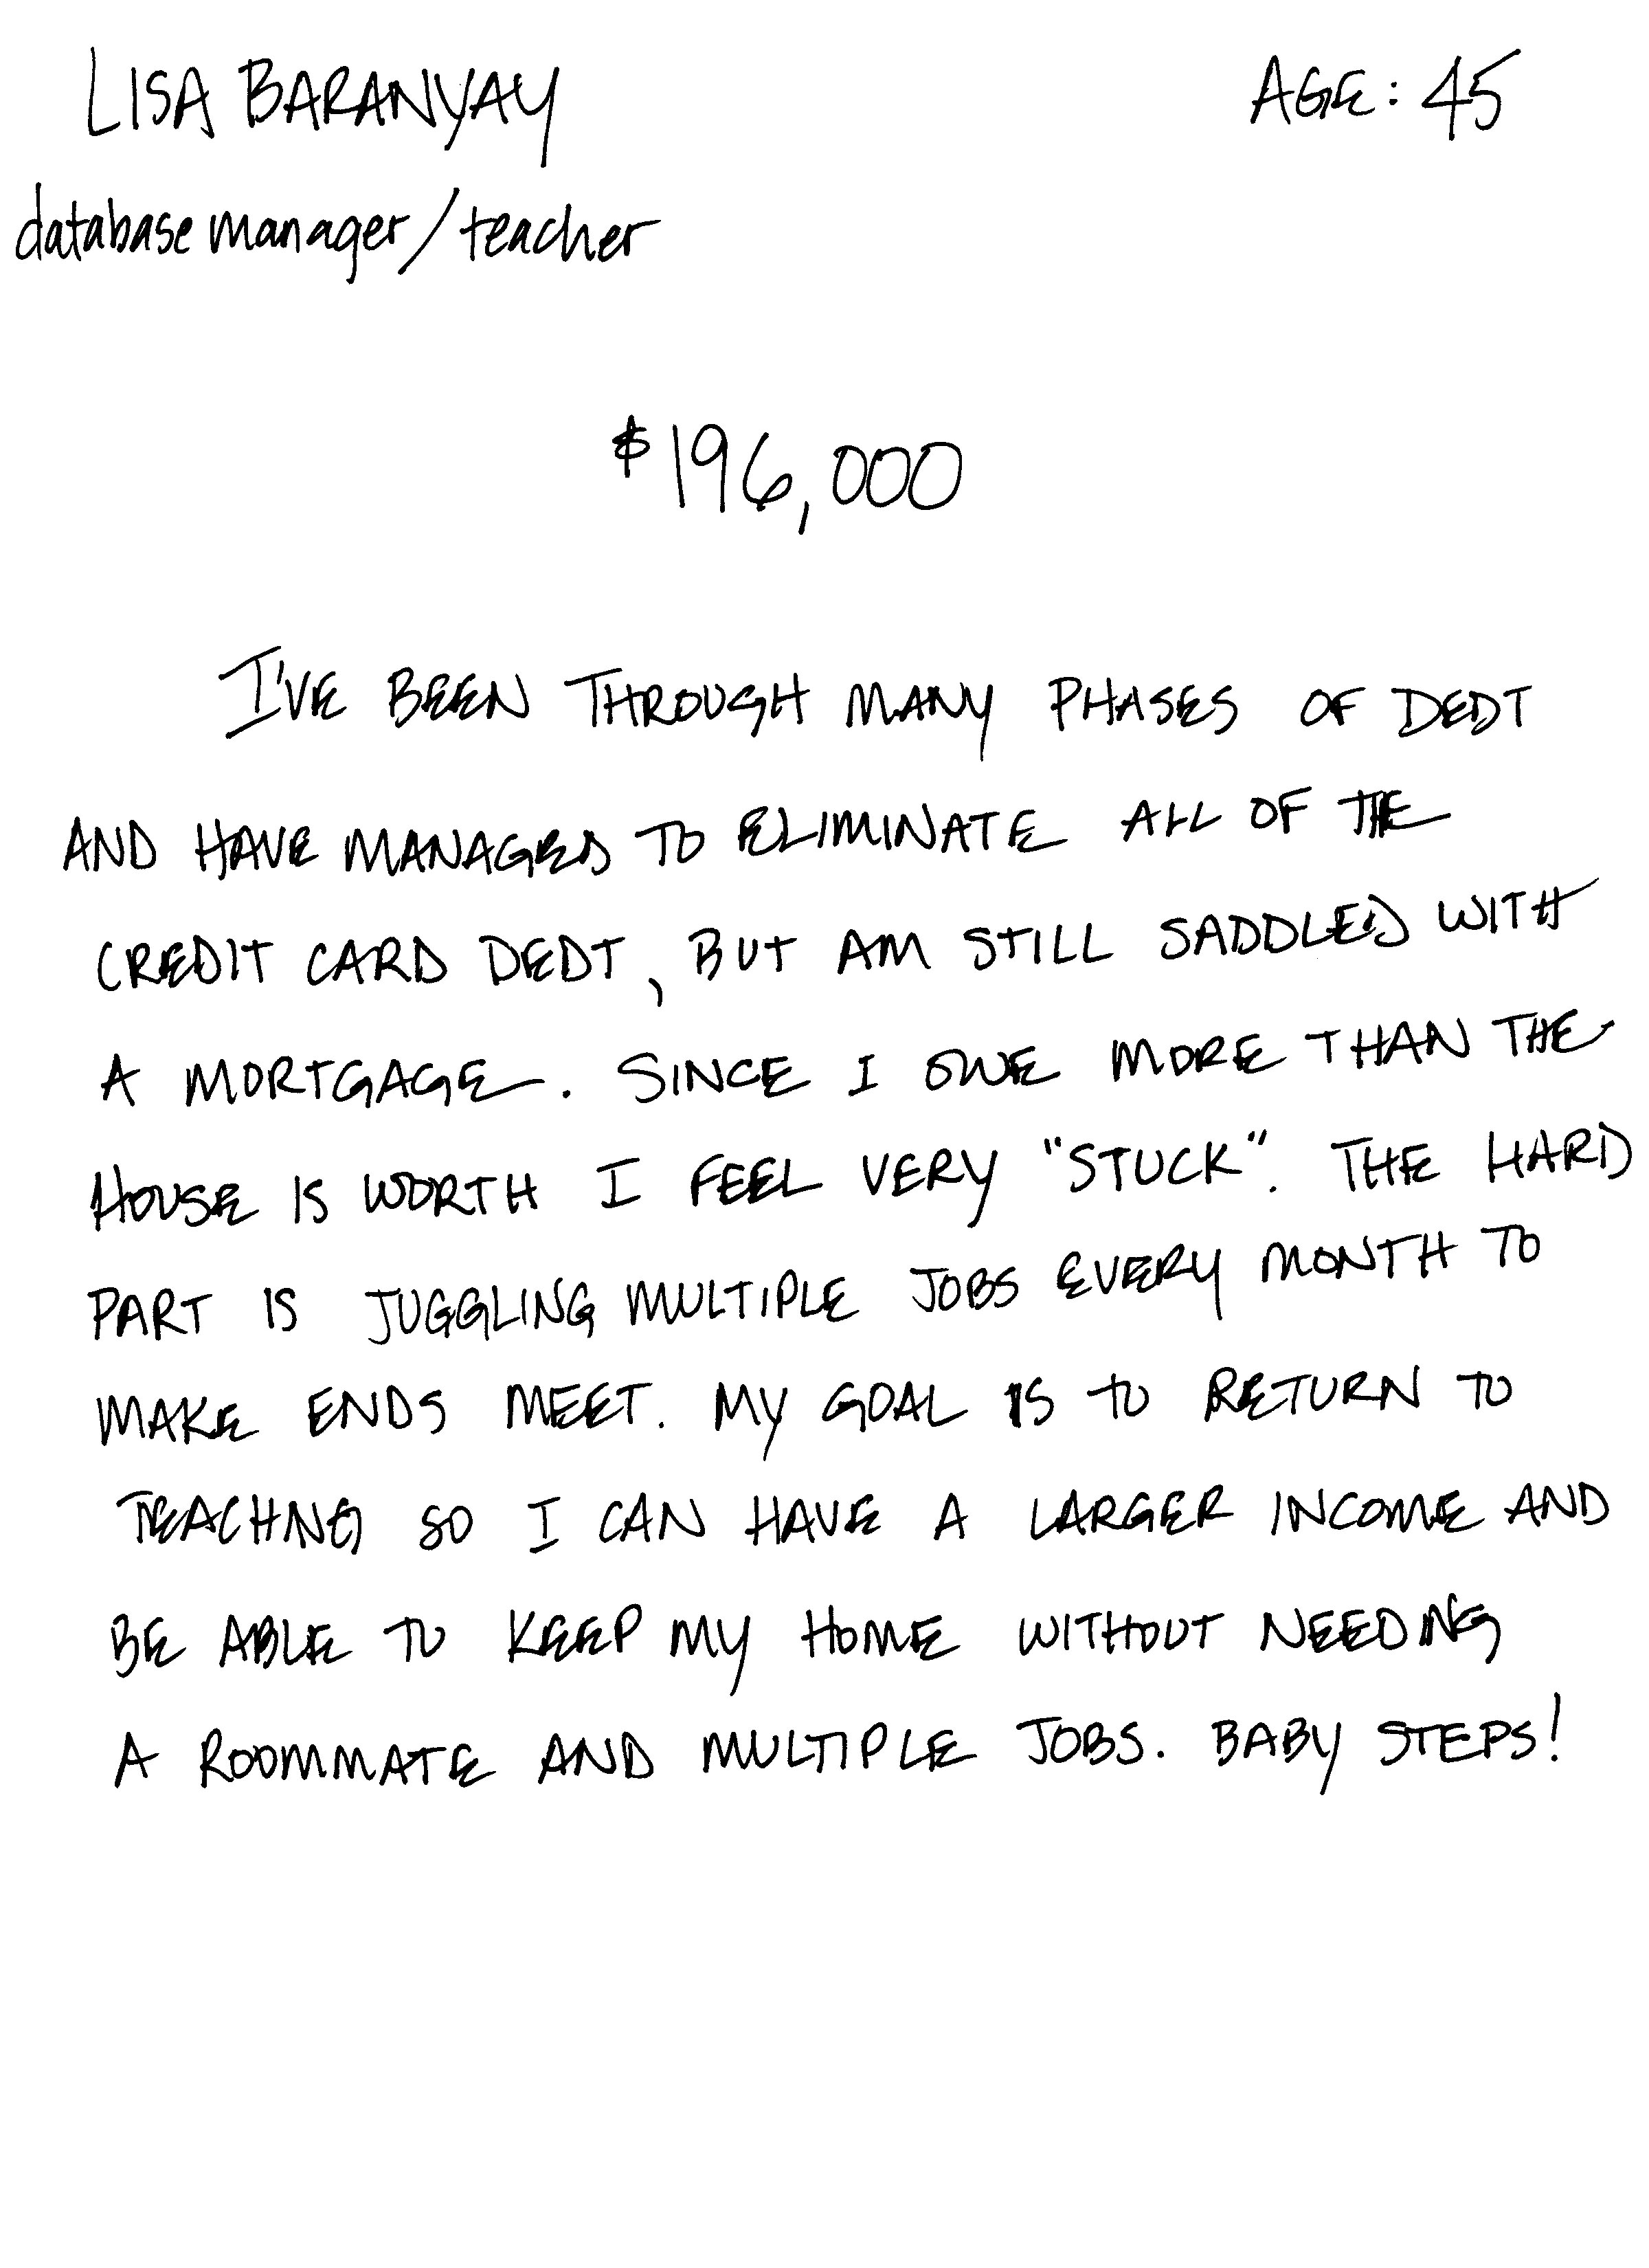 LISA BARANYAY
AGE: 45
database manager/teacher
$196,000
I'VE BEEN THROUGH MANY PHASES OF DEDT
AND HAVE MANAGED TO ELIMINATE ALL OF THE
CREDIT CARD DEDT, BUT AM STILL SADDLED WITH
A MORTGAGE. SINCE I OWE MORE THAN THE
HOUSE IS WORTH I FEEL VERY "STUCK". THE HARD
PART IS JUGGLING MULTIPLE JOBS EVERY MONTH TO
MAKE ENDS MEET. MY GOAL IS TO RETURN TO
TEACHNG SO I CAN HAVE A LARGER INCOME AND
BE ABLE TO KEEP MY HOME WITHOUT NEEDING
A ROOMMATE AND MULTIPLE JOBS. BABY STEPS!